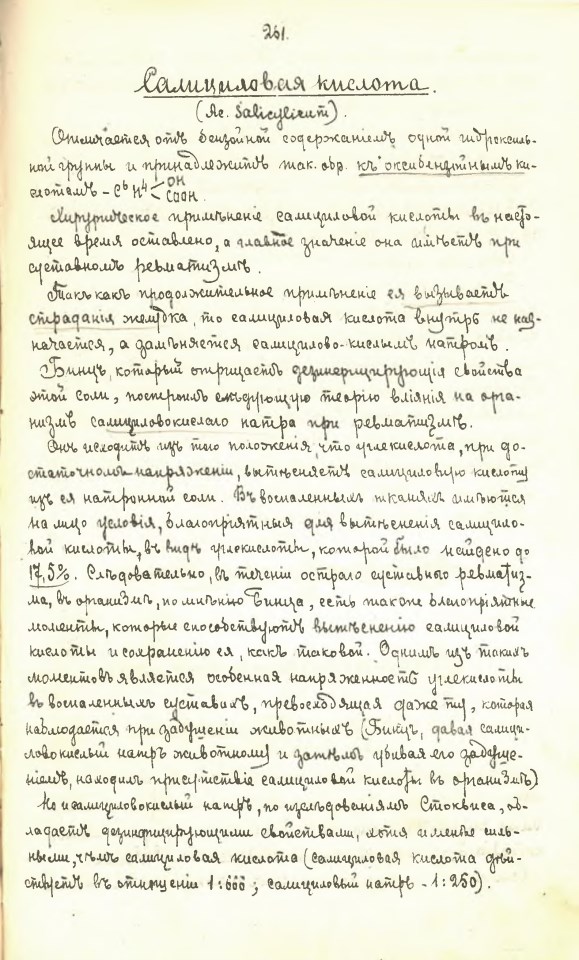 261.
Салициловая кислота.
(Ac. Salicylicum).
Отличается отъ бензойной содержаніемъ одной гидроксиль-
ной группы и принадлежитъ так. обр. къ оксибензойнымъ ки-
слотамъ - C⁶H⁴<OH COOH.
Хирургическое примѣненіе салициловой кислоты въ насто-
ящее время оставлено, а главное значеніе она имѣетъ при
суставномъ ревматизмѣ.
Такъ какъ продолжительное примѣненіе ея вызываетъ
страданія желудка, то салициловая кислота внутрь не наз-
начается, а замѣняется салицилово-кислымъ натромъ.
Бинцъ, который отрицаетъ дезинфицирующія свойства
этой соли, построилъ слѣдующую теорію вліянія на орга-
низмъ салициловокислаго натра при ревматизмѣ.
Онъ исходитъ изъ того положенія, что углекислота, при до-
статочномъ напряженіи, вытѣсняетъ салициловую кислоту
изъ ея натронной соли. Въ воспаленныхъ тканяхъ имѣются
на лицо условія, благопріятныя для вытѣсненія салицило-
вой кислоты, въ видѣ углекислоты, которой было найдено до
17,5%. Слѣдовательно, въ теченіи остраго суставнаго ревматиз-
ма, въ организмѣ, по мнѣнію Бинца, есть такоже благопріятные
моменты, которые способствуютъ вытѣсненію салициловой
кислоты и сохраненію ея, какъ таковой. Однимъ изъ такихъ
моментовъ является особенная напряженность углекислоты
въ воспаленныхъ суставахъ, превосходящая даже ту, которая
наблюдается при задушеніи животныхъ (Бинцъ, давая салици-
ловокислый натръ животному и затѣмъ убивая его задуше-
ніемъ, находилъ присутствіе салициловой кислоты въ организмѣ)
Но и салициловокислый натръ, по изслѣдованіямъ Стоквиса, об-
ладаетъ дезинфицирующими свойствами, хотя и менѣе силь-
ными, чѣмъ салициловая кислота (салициловая кислота дѣй-
ствуетъ въ отношеніи 1: ; салициловый натръ - 1:250).